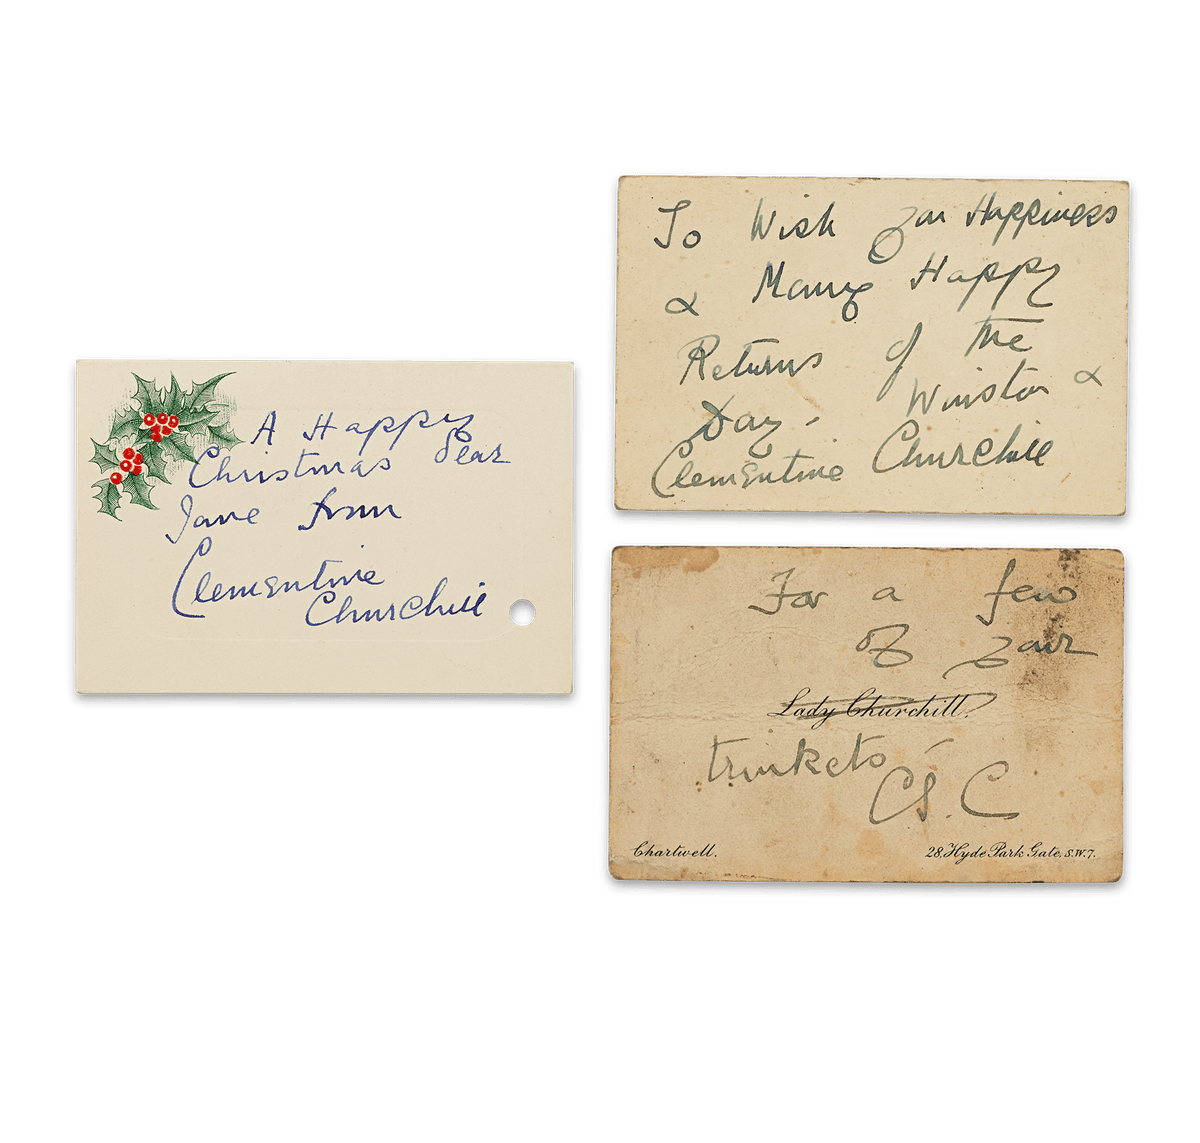 A Happy
Christmas dear
Jane from
Clementine
Churchill
To Wish you Happiness
& Many Happy
Returns of the
Day - Winston &
Clementine Churchill
For a few
of your
Lady Churchill.
trinkets -
C.S.C
Chartwell.
28, Hyde Park Gate, S.W.7.